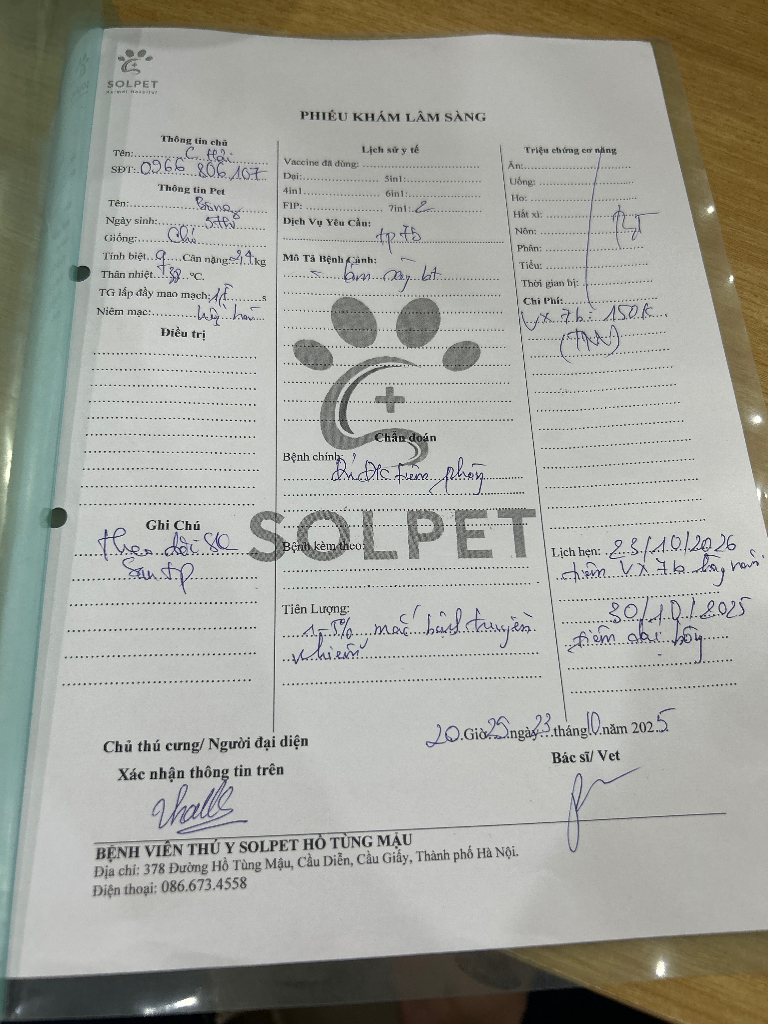 SOLPET
Animal Hospital
PHIẾU KHÁM LÂM SÀNG
Thông tin chủ
Tên: C. Hải
SĐT: 0966 806 107
Thông tin Pet
Tên: Bông
Ngày sinh: 5th
Giống: Chó
Tính biệt ♀ Cân nặng: kg
Thân nhiệt: 38 °C.
TG lấp đầy mao mạch: s
Niêm mạc:
Điều trị
Ghi Chú
theo dõi SK
sau tp
Lịch sử y tế
Vaccine đã dùng:
Dại: 5in1:
4in1 6in1:
FIP: 7in1: 2
Dịch Vụ Yêu Cầu:
tp 7b
Mô Tả Bệnh Cảnh:
lâm sàng bt
Chẩn đoán
Bệnh chính: Đủ ĐK tiêm phòng
SOLPET
Bệnh kèm theo:
Tiên Lượng:
1-5% mắc bệnh truyền
nhiễm
Triệu chứng cơ năng
Ăn:
Uống:
Ho:
Hắt xì:
Nôn:
Phân:
Tiểu:
Thời gian bị:
Chi Phí:
VX 7b: 150K
Lịch hẹn: 23/10/2026
tiêm VX 7b
30/10/2025
tiêm dại
20 Giờ 25 ngày 23 tháng 10 năm 2025
Chủ thú cưng/ Người đại diện
Xác nhận thông tin trên
Bác sĩ/ Vet
BỆNH VIỆN THÚ Y SOLPET HỒ TÙNG MẬU
Địa chỉ: 378 Đường Hồ Tùng Mậu, Cầu Diễn, Cầu Giấy, Thành phố Hà Nội.
Điện thoại: 086.673.4558